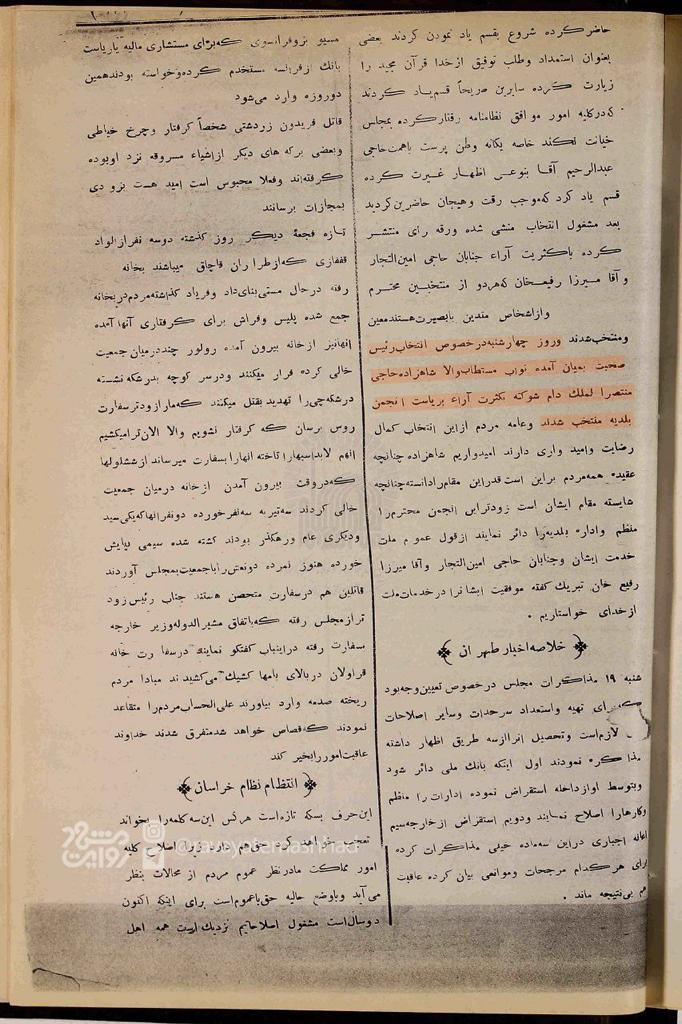 حاضر کرده شروع بقسم یاد نمودن کردند بعضی
بعنوان استمداد وطلب توفیق از خدا قرآن مجید را
زیارت کرده سایرین صریحاً قسم یاد کردند
که در کلیه امور موافق نظامنامه رفتار کرده بمجلس
خیانت نکنند خاصه یگانه وطن پرست باهمت حاجی
عبدالرحیم آقا بنوعی اظهار غیرت کرده
قسم یاد کرد که موجب رقت وهیجان حاضرین گردید
بعد مشغول انتخاب منشی شده ورقه رای منتشر
کرده باکثریت آراء جنابان حاجی امین التجار
و آقا میرزا رفیعخان که هر دو از منتخبین محترم
و از اشخاص متدین بابصیرت هستند معین
ومنتخب شدند وروز چهارشنبه در خصوص انتخاب رئیس
صحبت بمیان آمده نواب مستطاب والا شاهزاده حاجی
منتصرالملک دام شوکته بکثرت آراء بریاست انجمن
بلدیه منتخب شدند وعامه مردم از این انتخاب کمال
رضایت وامید واری دارند امیدواریم شاهزاده چنانچه
عقیده همه مردم بر این است قدر این مقام را دانسته چنانچه
شایسته مقام ایشان است زودتر این انجمن محترم را
منظم واداره بلدیه را دائر نمایند از قول عموم ملت
خدمت ایشان وجنابان حاجی امین التجار وآقا میرزا
رفیع خان تبریک گفته موفقیت ایشانرا در خدمات ملت
از خدای خواستاریم .
خلاصه اخبار طهران
شنبه ۱۹ مذاکرات مجلس در خصوص تعیین وجه بود
که برای تهیه واستعداد سرحدات وسایر اصلاحات
لازم است وتحصیل آنرا از سه طریق اظهار داشته
مذاکره نمودند اول اینکه بانک ملی دائر شود
وبتوسط او از داخله استقراض نموده ادارات را منظم
وکارها را اصلاح نمایند ودویم استقراض از خارجه سیم
اعانه اجباری در این سه ماده خیلی مذاکرات کرده
برای هر کدام مرجحات وموانعی بیان کرده عاقبت
هم بی نتیجه ماند .
مسیو بزو فرانسوی که برای مستشاری مالیه یا ریاست
بانک از فرانسه مستخدم کرده وخواسته بودند همین
دو روزه وارد میشود
قاتل فریدون زردشتی شخصاً گرفتار وچرخ خیاطی
وبعضی برگه های دیگر از اشیاء مسروقه نزد او بوده
گرفته اند وفعلا محبوس است امید هست بزودی
بمجازات برسانند
تازه فجعهٔ دیگر روز گذشته دو سه نفر از الواد
قفقازی که از طراران قاچاق میباشند بخانه
رفته در حال مستی بنای داد وفریاد گذاشته مردم در بخانه
جمع شده پلیس وفراش برای گرفتاری آنها آمده
آنها نیز از خانه بیرون آمده رولور چند در میان جمعیت
خالی کرده فرار میکنند ودر سر کوچه بدرشکه نشسته
درشکه چی را تهدید بقتل میکنند که ما را زودتر سفارت
روس برسان که گرفتار نشویم والا الان ترا میکشیم
آنهم لابد اسبها را تاخته آنها را بسفارت میرساند از ششلولها
که در وقت بیرون آمدن از خانه در میان جمعیت
خالی کردند سه تیر به سه نفر خورده دو نفر آنها که یکی سید
ودیگری عام ورهگذر بودند کشته شده سیمی بپایش
خورده هنوز نمرده دو نعش را باجمعیت بمجلس آوردند
قاتلین هم در سفارت متحصن هستند جناب رئیس زود
تر از مجلس رفته که باتفاق مشیرالدوله وزیر خارجه
بسفارت رفته در اینباب گفتگو نمایند در سفارت خانه
قراولان در بالای بامها کشیک میکشیدند مبادا مردم
ریخته صدمه وارد بیاورند علی الحساب مردم را متقاعد
نمودند که قصاص خواهد شد متفرق شدند خداوند
عاقبت امور را بخیر کند
انتظام نظام خراسان
این حرف بسکه تازه است هر کس این سه کلمه را بخواند
تعجب خواهد کرد حق هم دارد زیرا اصلاح کلیه
امور مملکت ما در نظر عموم مردم از محالات بنظر
می آید وباوضع حالیه حق باعموم است برای اینکه اکنون
دو سال است مشغول اصلاحاتیم نزدیک است همه اهل
روایت مشهد
@revayatemashhad